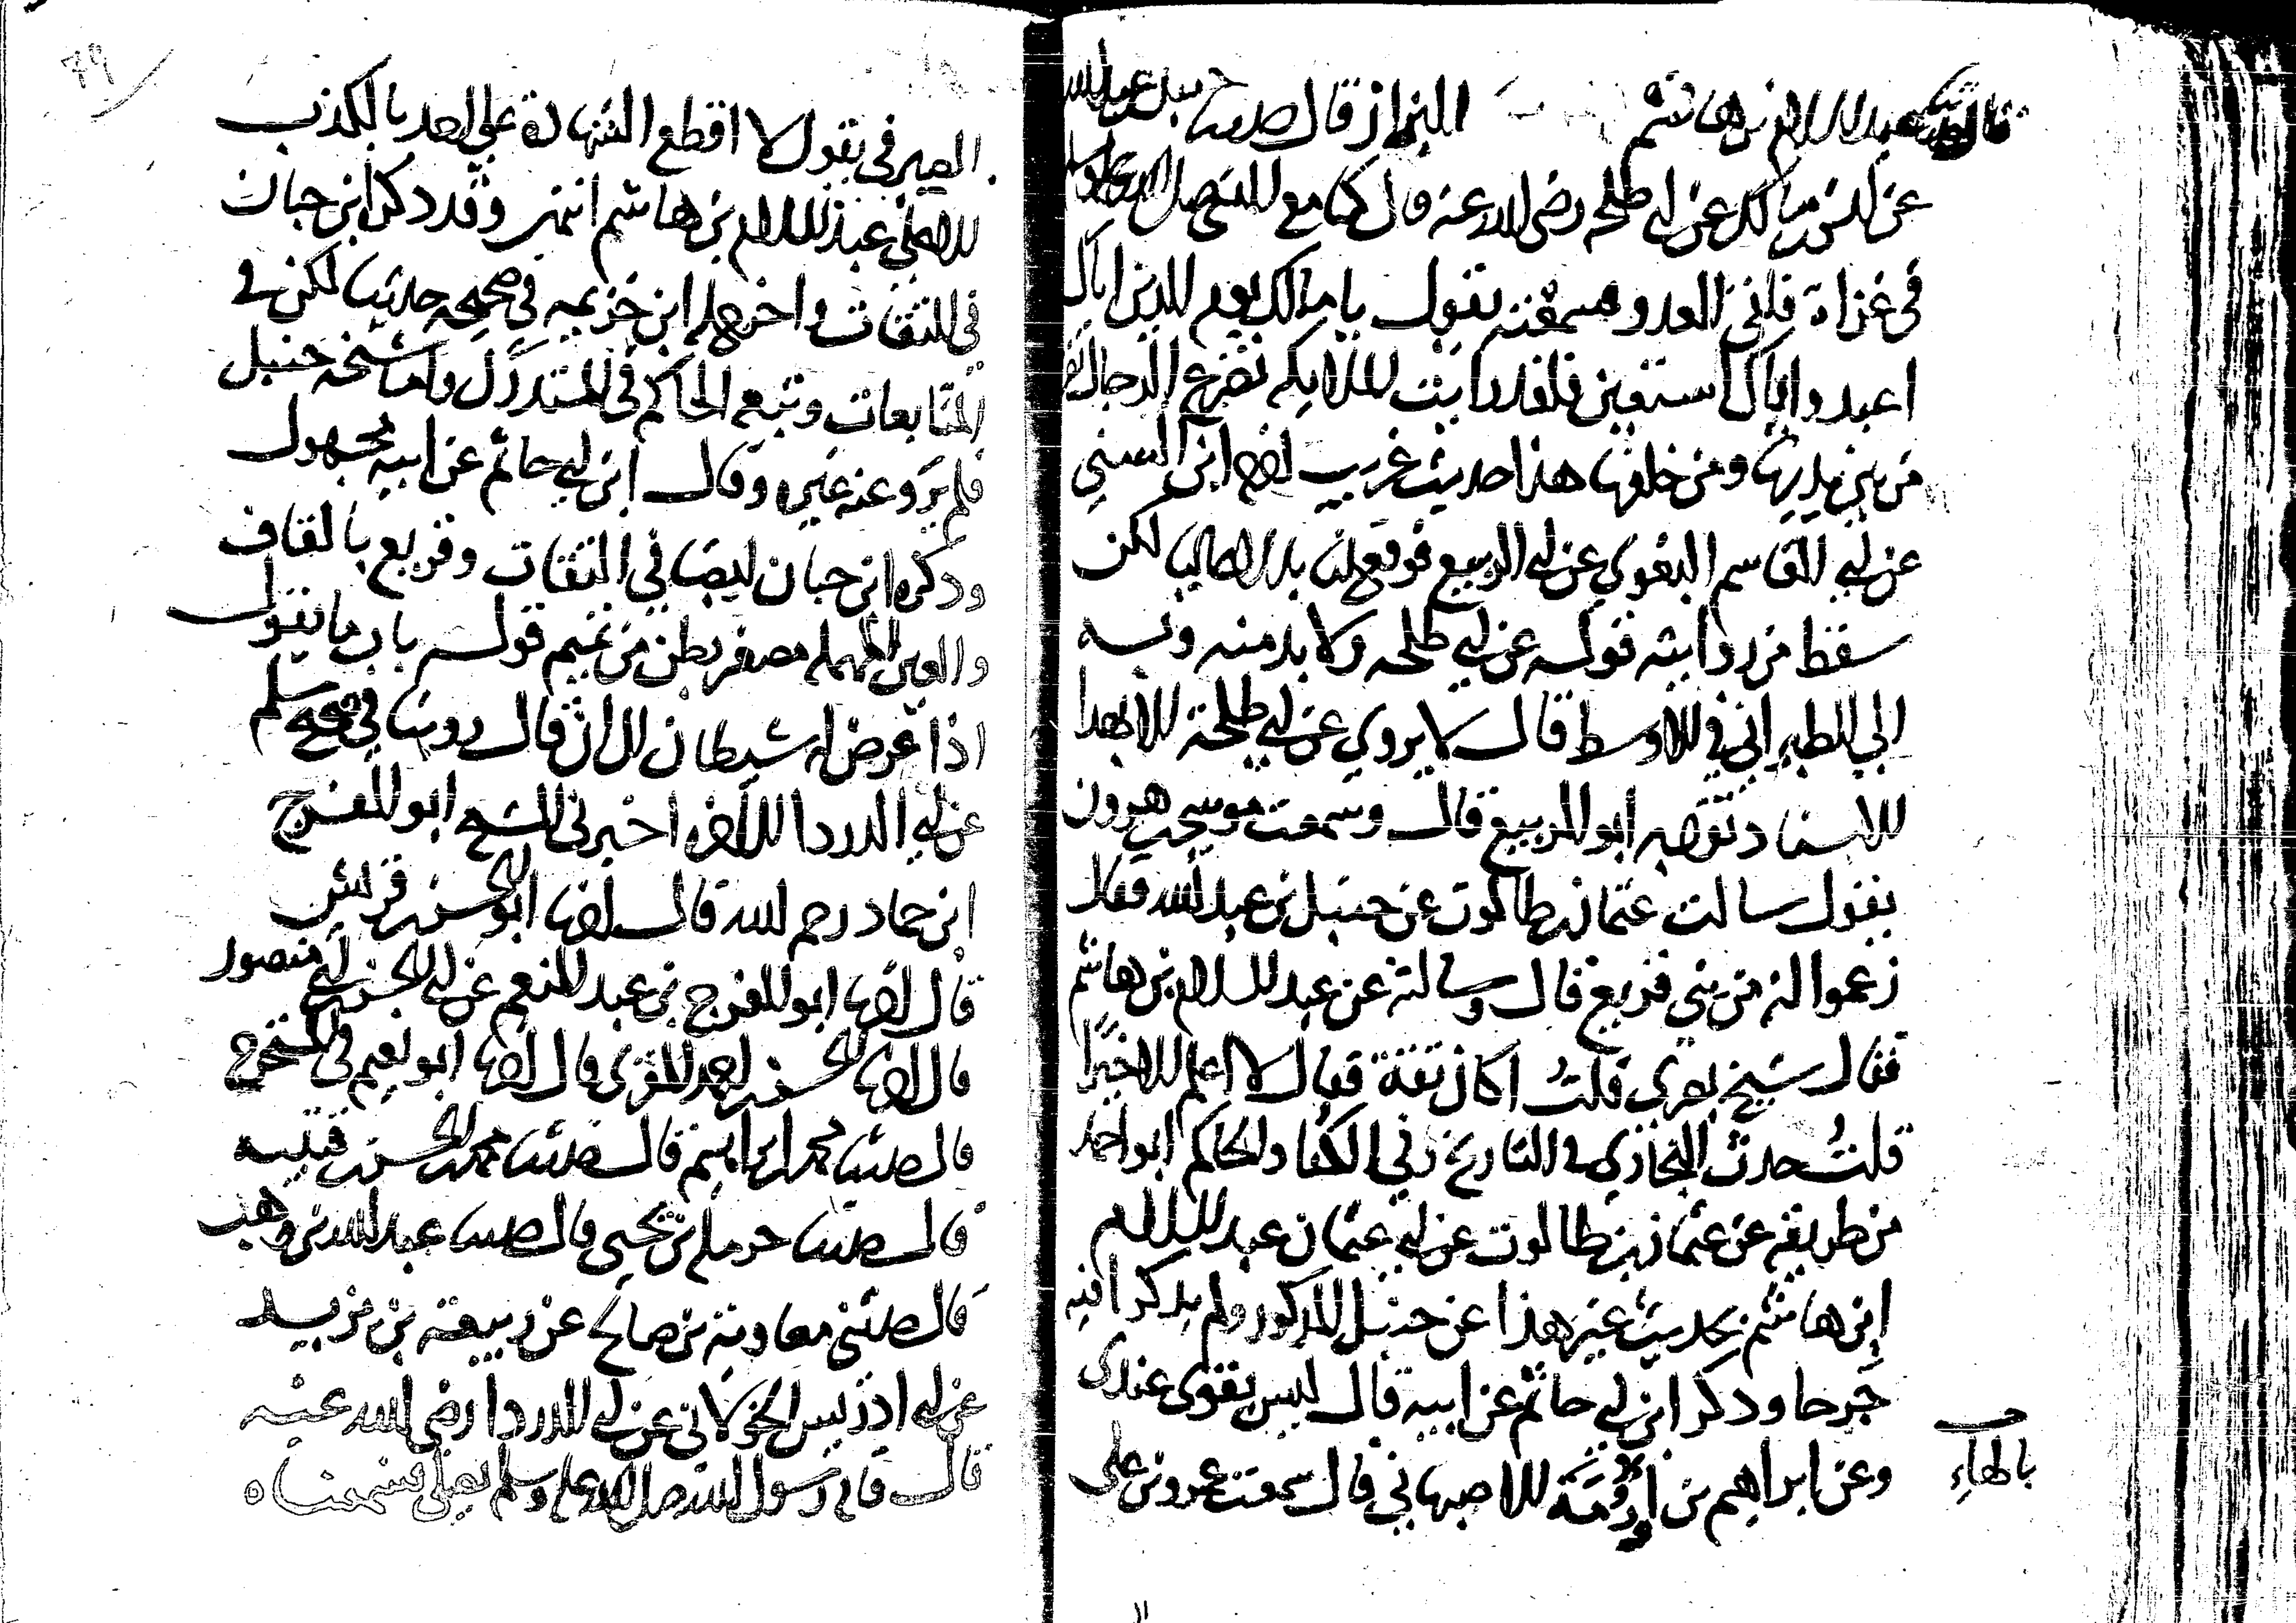 قال حدثنا عبد السلام بن هاشم البزاز قال حدثنا حنبل بن عبد الله
عن انس بن مالك عن ابي طلحة رضي الله عنه قال كنا مع النبي صلى الله عليه وسلم
في غزاة فلقي العدو فسمعته يقول يا مالك يوم الدين اياك
اعبد واياك استعين فلقد رايت الملايكة تضرع الرجال
من بين يديها ومن خلفها هذا حديث غريب اخرجه ابن السني
عن ابي القاسم البغوي عن ابي الربيع فوقع لنا بدلا عاليا لكن
سقط من روايته قوله عن ابي طلحة ولا بد منه وبه
الي الطبراني في الاوسط قال لا يروي عن ابي طلحة الا بهذا
الاسناد تفرد به ابو الربيع قال وسمعت موسى بن هرون
يقول سالت عثمان بن طالوت عن حنبل بن عبد الله فقال
زعموا انه من بني قريع قال وسالته عن عبد السلام بن هاشم
فقال شيخ بصري قلت اكان ثقة فقال لا اعلم الا خيرا
قلت حدث البخاري في التاريخ وفي الكنا والحاكم ابو احمد
من طريقه عن عثمان بن طالوت عن ابي عثمان عبد السلام
ابن هاشم بحديث غير هذا عن حنبل المذكور ولم يذكرا فيه
جرحا وذكر ابن ابي حاتم عن ابيه قال ليس بقوي عندي
وعن ابراهيم بن اورمة الاصبهاني قال سمعت عمرو بن علي
بالهاء
79
الصيرفي يقول لا اقطع الشهادة على احد بالكذب
الا على عبد السلام بن هاشم انتهى وقد ذكره ابن حبان
في الثقات واخرج له ابن خزيمه في صحيحه حديثا لكن في
المتابعات وتبعه الحاكم في المستدرك واما شيخه حنبل
فلم يرو عنه غيره وقال ابن ابي حاتم عن ابيه مجهول
وذكره ابن حبان ايضا في الثقات وقريع بالقاف
والعين المهملة مصغر بطن من تميم قوله باب ما يقول
اذا عرض له شيطان الى ان قال روينا في صحيح مسلم
عن ابي الدردا الى اخره اخبرني الشيخ ابو الفرج
ابن حماد رحمه الله قال اخبرنا ابو الحسن بن قريش
قال اخبرنا ابو الفرج بن عبد المنعم عن ابي الحسن بن ابي منصور
قال اخبرنا الحسن بن احمد المقري قال اخبرنا ابو نعيم في المستخرج
قال حدثنا محمد بن ابراهيم قال حدثنا محمد بن الحسن بن قتيبه
قال حدثنا حرملة بن يحيى قال حدثنا عبد الله بن وهب
قال حدثني معاوية بن صالح عن ربيعة بن يزيد
عن ابي ادريس الخولاني عن ابي الدردا رضي الله عنه
قال قام رسول الله صلى الله عليه وسلم يصلي فسمعناه